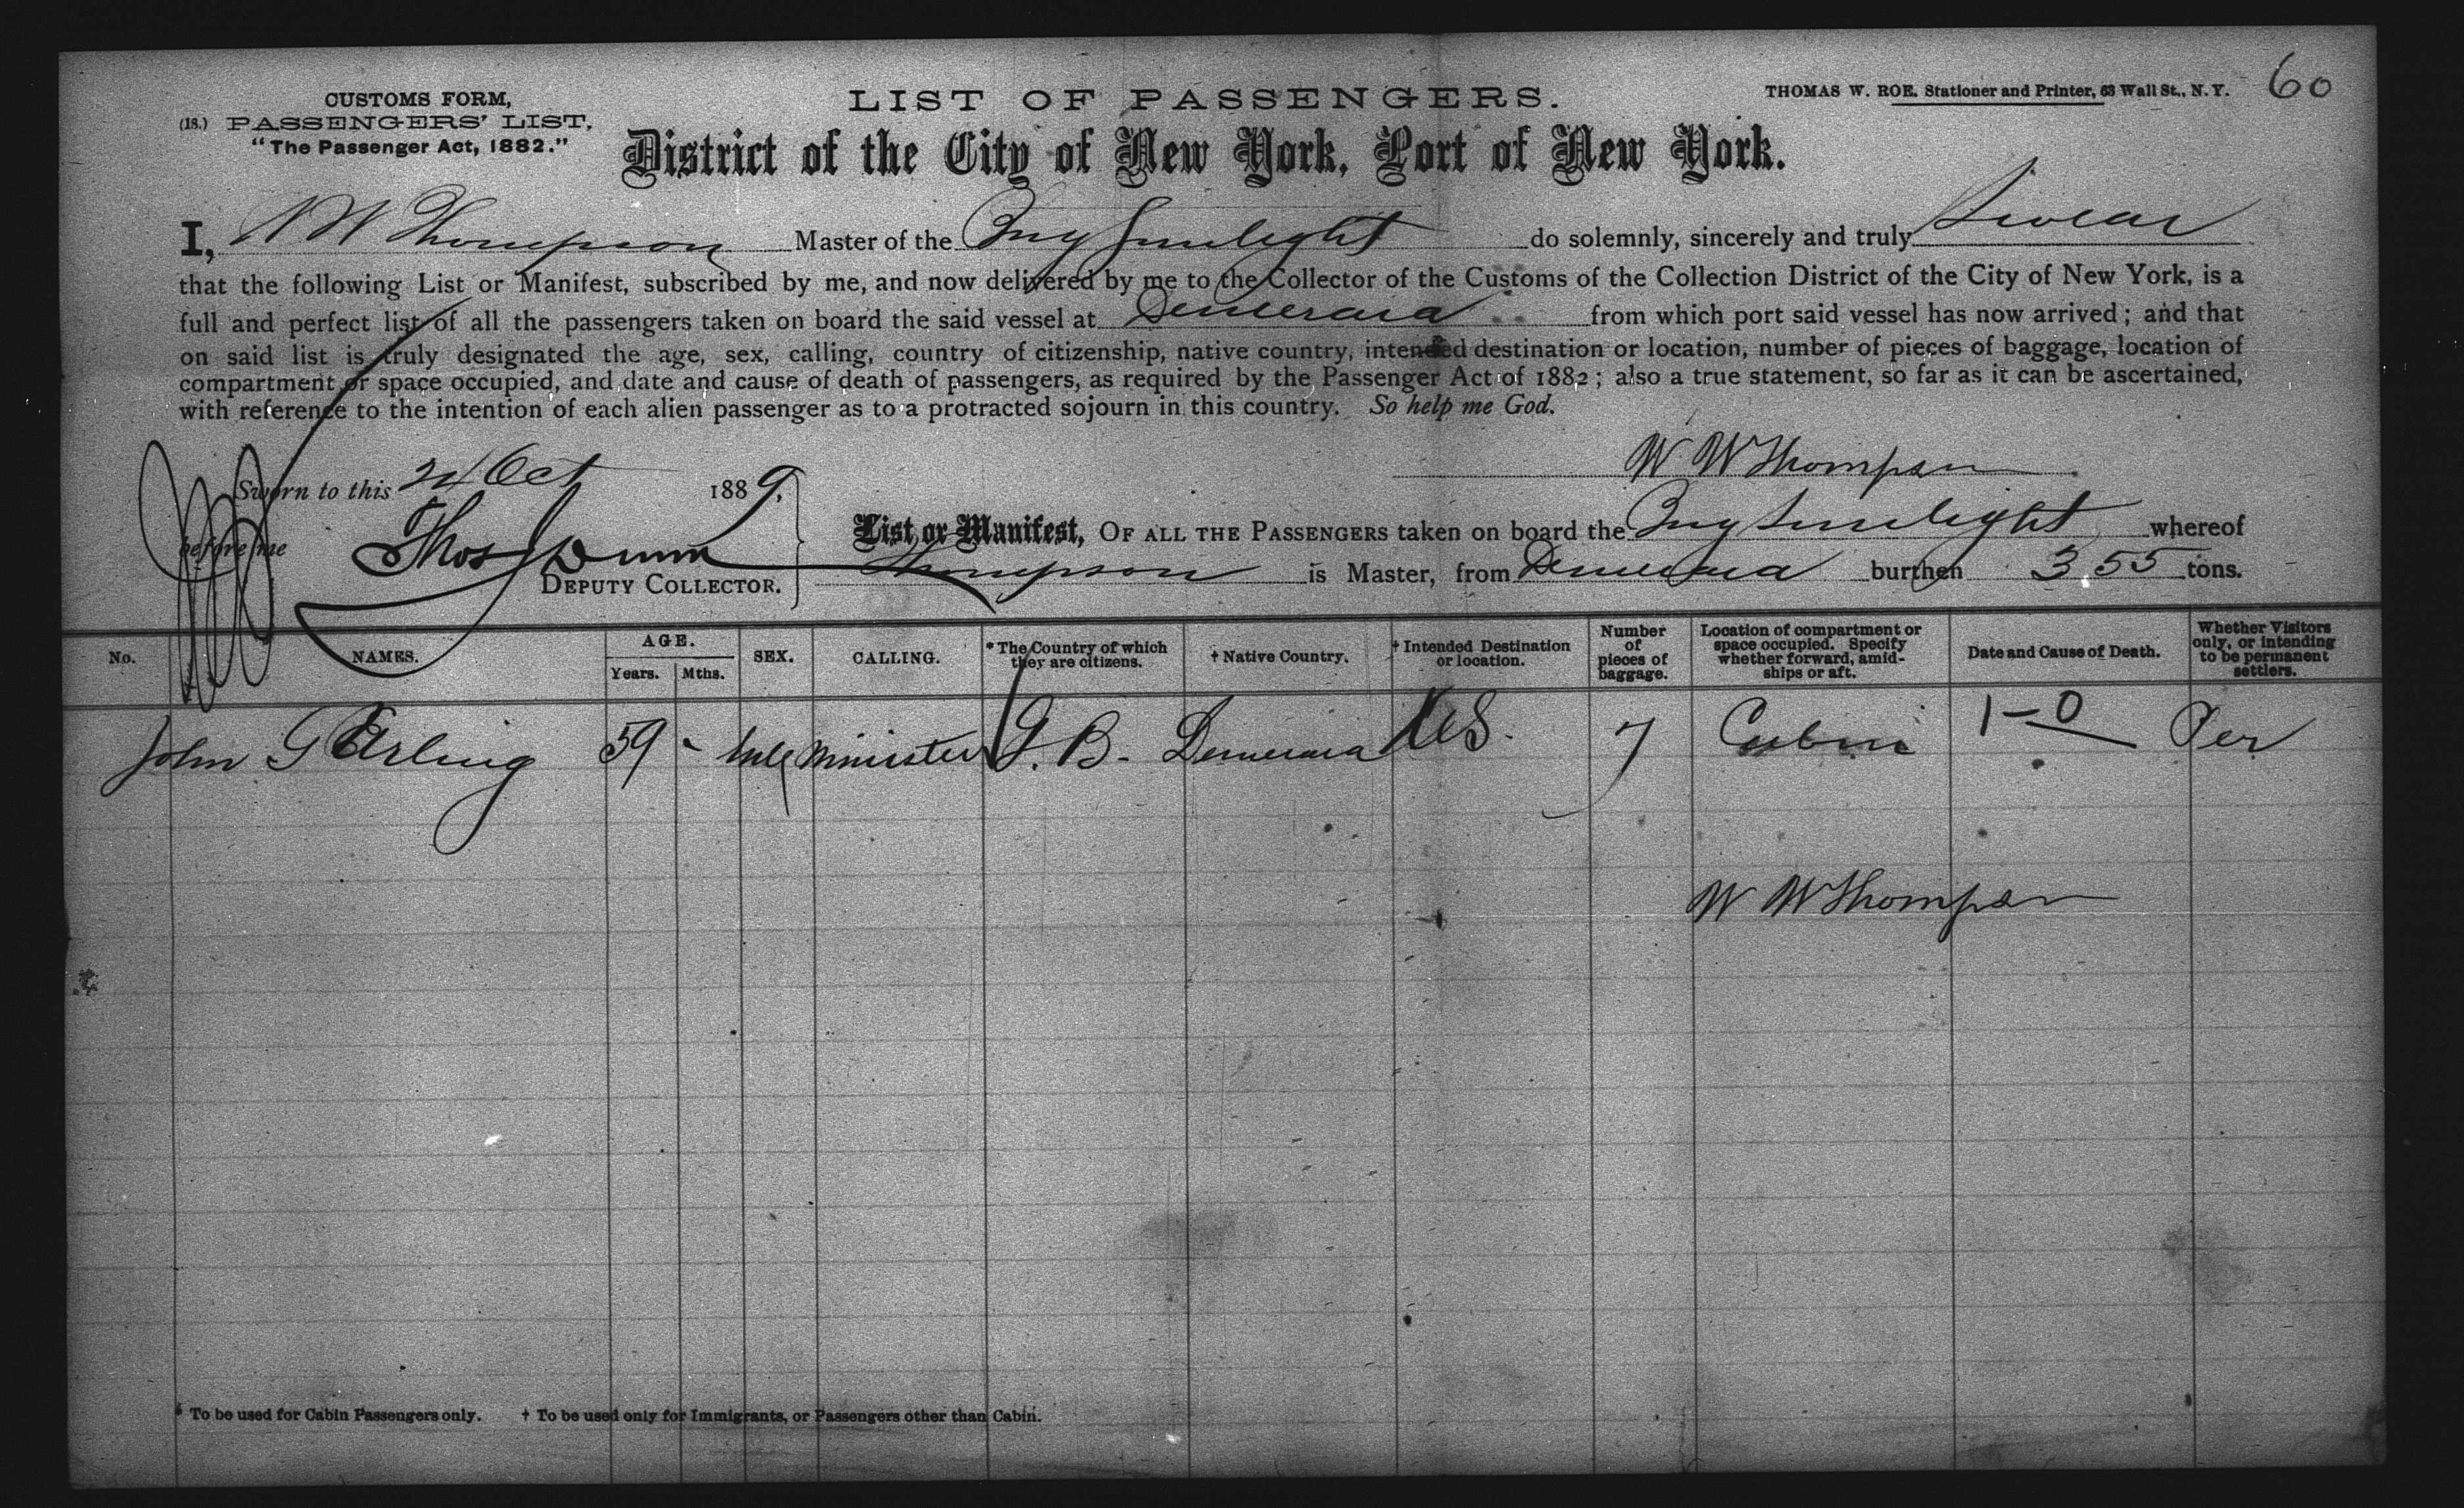 60
CUSTOMS FORM,
(18.) PASSENGERS' LIST,
"The Passenger Act, 1882."
LIST OF PASSENGERS.
THOMAS W. ROE, Stationer and Printer, 63 Wall St., N.Y.
District of the City of New York, Port of New York.
I, W W Thompson Master of the Brig Sunlight do solemnly, sincerely and truly Swear
that the following List or Manifest, subscribed by me, and now delivered by me to the Collector of the Customs of the Collection District of the City of New York, is a
full and perfect list of all the passengers taken on board the said vessel at Demerara from which port said vessel has now arrived; and that
on said list is truly designated the age, sex, calling, country of citizenship, native country, intended destination or location, number of pieces of baggage, location of
compartment or space occupied, and date and cause of death of passengers, as required by the Passenger Act of 1882; also a true statement, so far as it can be ascertained,
with reference to the intention of each alien passenger as to a protracted sojourn in this country. So help me God.
W W Thompson
Sworn to this 24 Oct 1889,
before me Thos Dunn
DEPUTY COLLECTOR.
List or Manifest, OF ALL THE PASSENGERS taken on board the Brig Sunlight whereof
Thompson is Master, from Demerara burthen 355 tons.
No. NAMES. AGE. Years. Mths. SEX. CALLING. * The Country of which they are citizens. † Native Country. † Intended Destination or location. Number of pieces of baggage. Location of compartment or space occupied. Specify whether forward, amidships or aft. Date and Cause of Death. Whether Visitors only, or intending to be permanent settlers.
John G 59 - Male Minister G. B. Demerara US. 7 Cabin 1-0 Per
W W Thompson
* To be used for Cabin Passengers only. † To be used only for Immigrants, or Passengers other than Cabin.